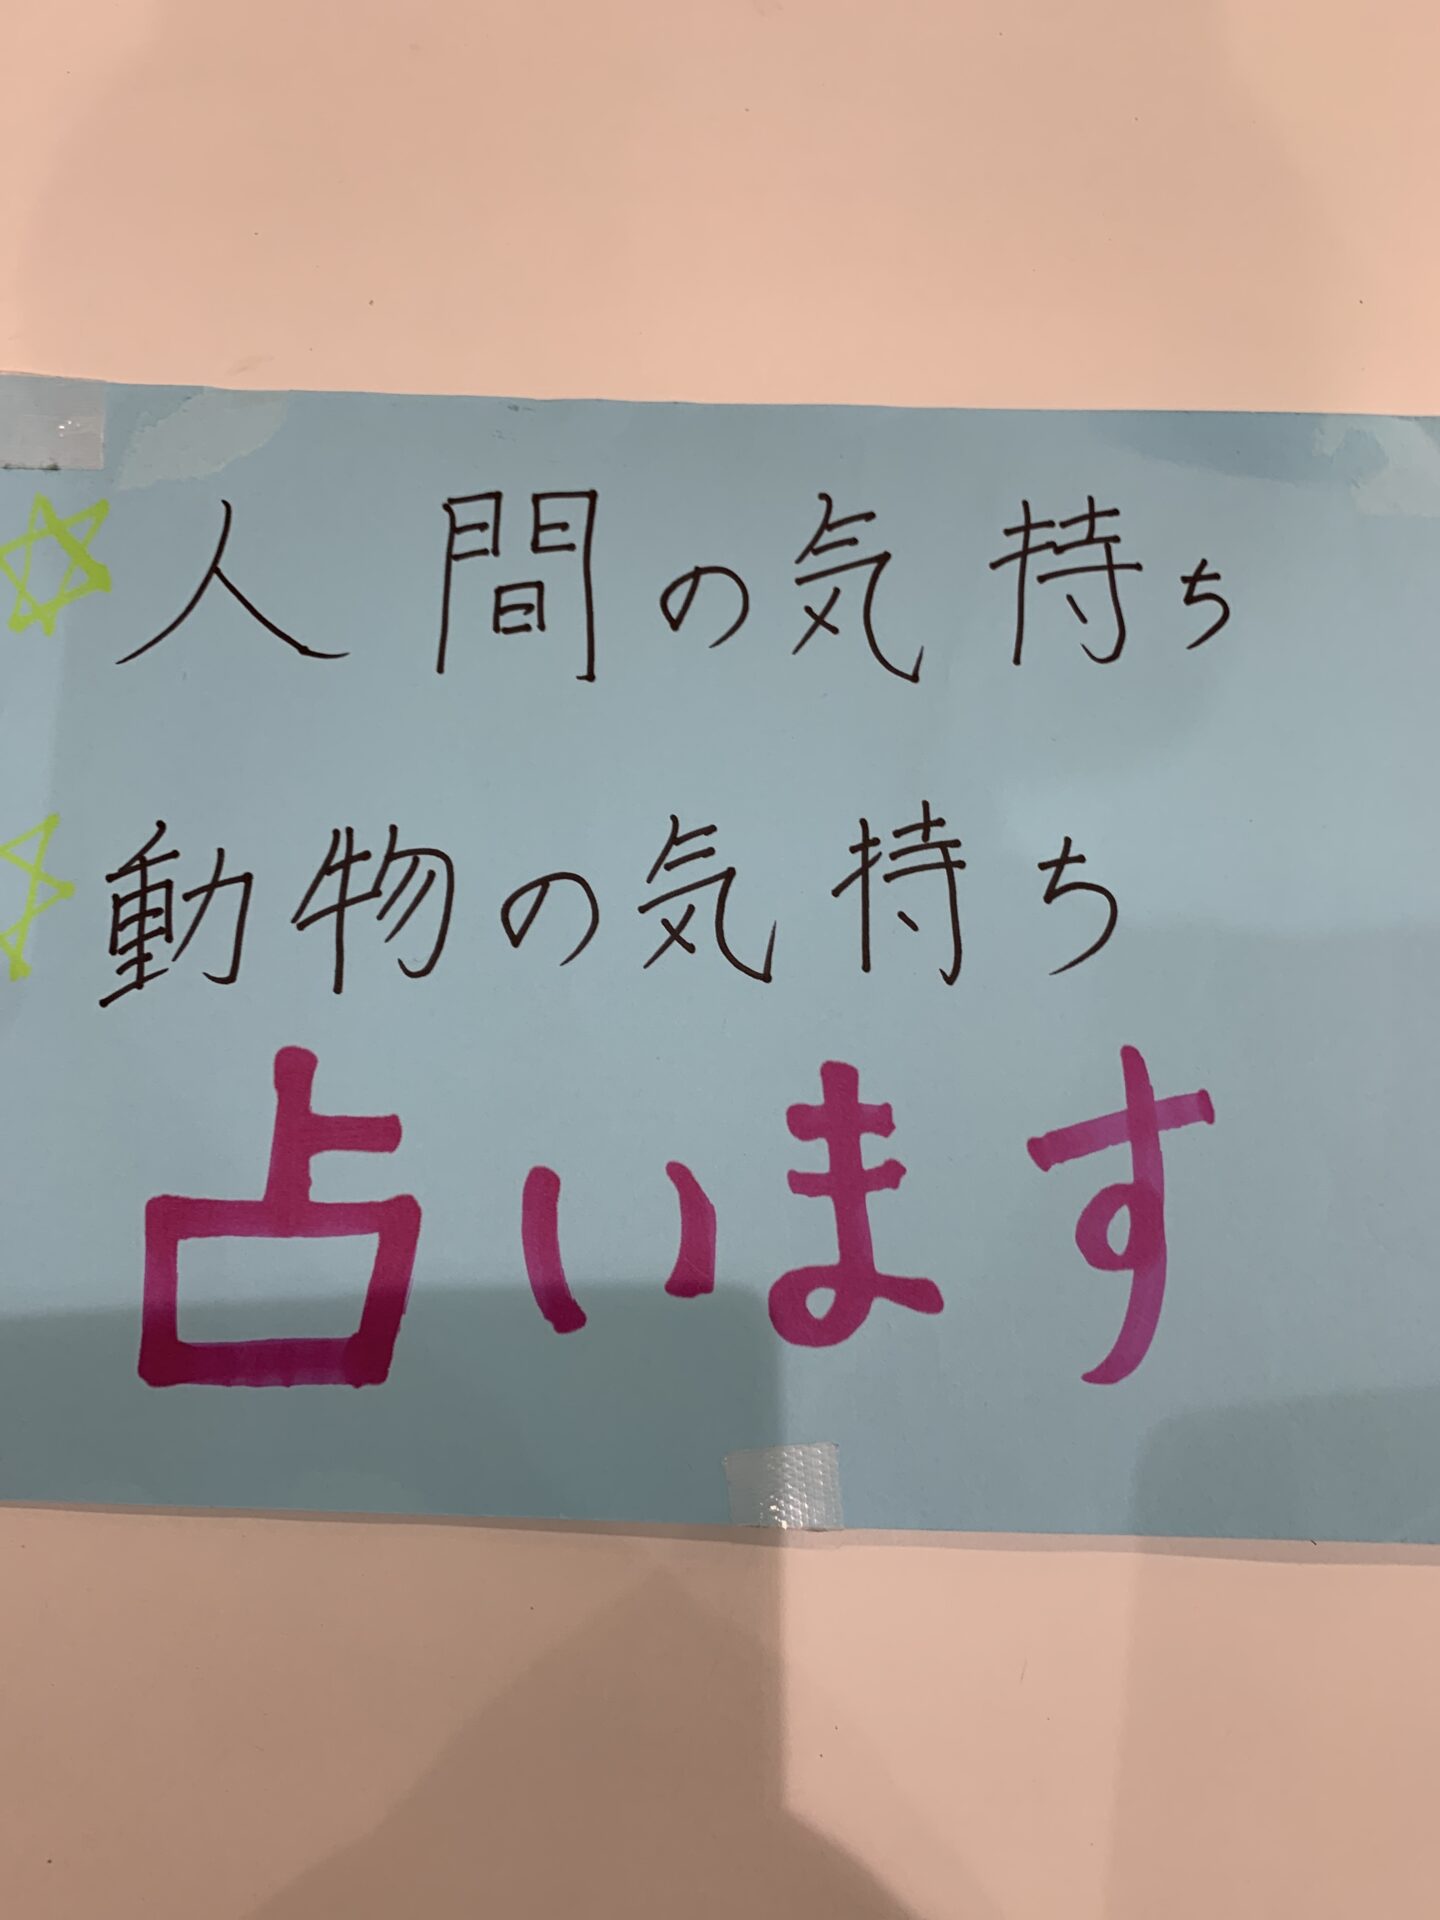 ☆人間の気持ち
☆動物の気持ち
占います